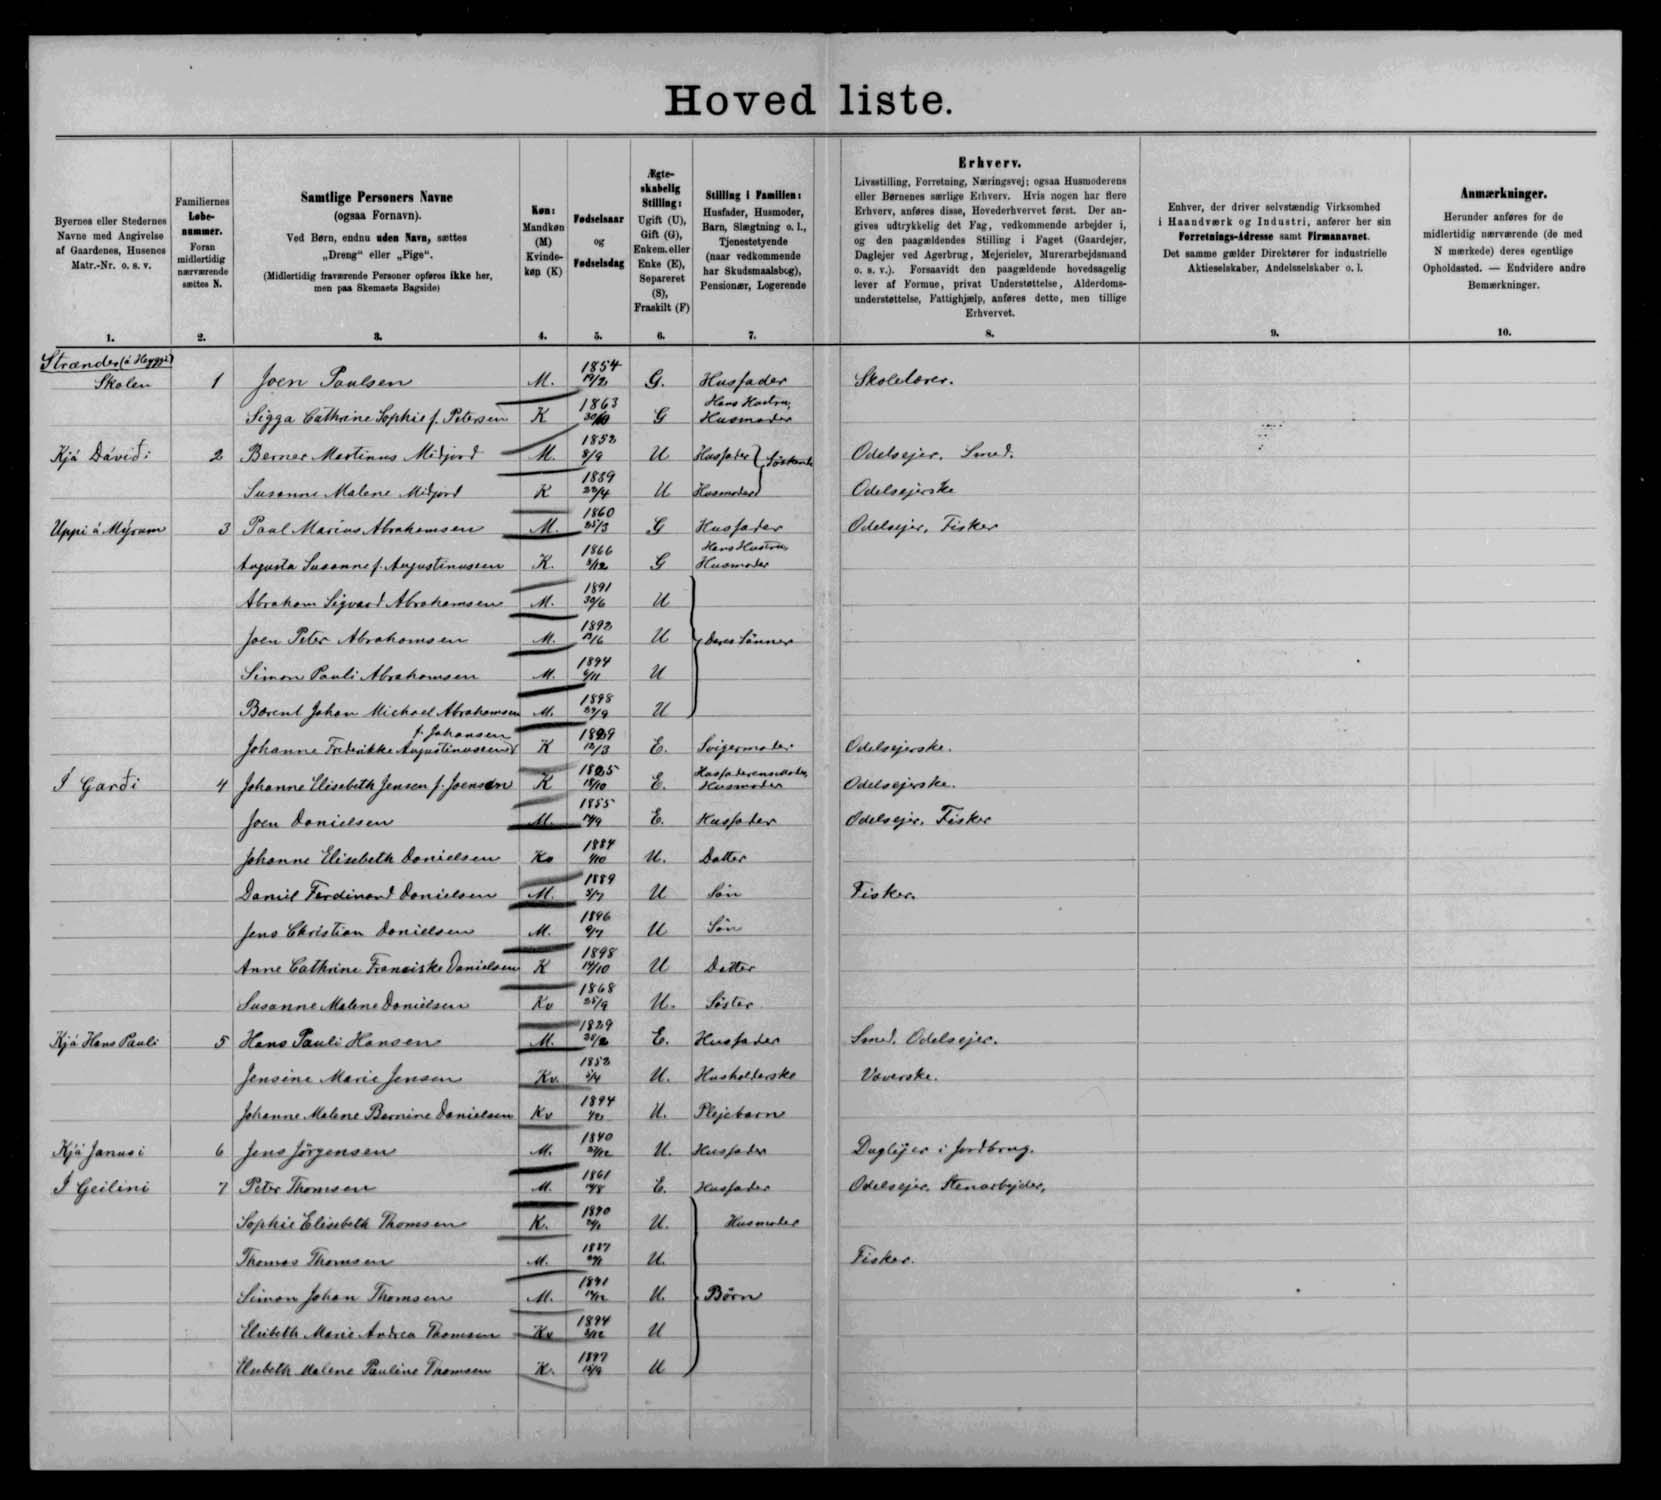 Hoved liste.
Byernes eller Stedernes Navne med Angivelse af Gaardenes, Husenes Matr.-Nr. o. s. v.
Familiernes Løbenummer. Foran midlertidig nærværende sættes N.
Samtlige Personers Navne
(ogsaa Fornavn).
Ved Børn, endnu uden Navn, sættes
„Dreng“ eller „Pige“.
(Midlertidig fraværende Personer opføres ikke her,
men paa Skemaets Bagside)
Køn: Mandkøn (M) Kvindekøn (K)
Fødselsaar og Fødselsdag
Ægteskabelig Stilling: Ugift (U), Gift (G), Enkem. eller Enke (E), Separeret (S), Fraskilt (F)
Stilling i Familien: Husfader, Husmoder, Barn, Slægtning o. l., Tjenestetyende (naar vedkommende har Skudsmaalsbog), Pensionær, Logerende
Erhverv.
Livsstilling, Forretning, Næringsvej; ogsaa Husmoderens
eller Børnenes særlige Erhverv. Hvis nogen har flere
Erhverv, anføres disse, Hovederhvervet først. Der an-
gives udtrykkelig det Fag, vedkommende arbejder i,
og den paagældendes Stilling i Faget (Gaardejer,
Daglejer ved Agerbrug, Mejerielev, Murerarbejdsmand
o. s. v.). Forsaavidt den paagældende hovedsagelig
lever af Formue, privat Understøttelse, Alderdoms-
understøttelse, Fattighjælp, anføres dette, men tillige
Erhvervet.
Enhver, der driver selvstændig Virksomhed
i Haandværk og Industri, anfører her sin
Forretnings-Adresse samt Firmanavnet.
Det samme gælder Direktører for industrielle
Aktieselskaber, Andelsselskaber o. l.
Anmærkninger.
Herunder anføres for de
midlertidig nærværende (de med
N mærkede) deres egentlige
Opholdssted. — Endvidere andre
Bemærkninger.
1. 2. 3. 4. 5. 6. 7. 8. 9. 10.
Strænder (á Heyggi)
Skolen 1 Joen Paulsen M. 1854 19/2 G. Husfader Skolelærer.
Sigga Cathrine Sophie f. Petersen K 1863 G Hans Hustru, Husmoder
Kjá Dávidi 2 Berner Martinus Midjord M. 1852 8/9 U Husfader Søskende Odelsejer. Smed.
Susanne Malene Midjord K U Husmoder Odelsejerske
Uppi á Mýrum 3 Poul Marius Abrahamsen M. 1860 25/3 G Husfader Odelsejer, Fisker
Augusta Susanne f. Augustinussen K. 1866 G Hans Hustru, Husmoder
Abraham Sigvard Abrahamsen M. 1891 30/6 U
Joen Peter Abrahamsen M. 1892 U Deres Sönner
Simon Pauli Abrahamsen M. 1894 U
Bærent Johan Michael Abrahamsen M. 1898 U
Johanne Frederikke Augustinussen f. Johansen K E. Svigermoder Odelsejerske.
Í Garði 4 Johanne Elisebeth Jensen f. Joensen K 18/10 E. Husfaderens Moder, Husmoder Odelsejerske.
Joen Danielsen M. 1855 E. Husfader Odelsejer. Fisker
Johanne Elisebeth Danielsen Kv 1884 U. Datter
Daniel Ferdinand Danielsen M. 1889 U Sön Fisker.
Jens Christian Danielsen M. 1896 U Sön
Anne Cathrine Franciske Danielsen K 1898 14/10 U Datter
Susanne Malene Danielsen Kv 1868 25/9 U. Söster
Kjá Hans Pauli 5 Hans Pauli Hansen M. 1829 E. Husfader Smed. Odelsejer.
Jensine Marie Jensen Kv. 1852 U. Husholderske Væverske.
Johanne Malene Bernine Danielsen Kv 1894 U. Plejebarn
Kjá Janusi 6 Jens Jörgensen M. 1840 U. Husfader Daglejer i Jordbrug.
Í Geilini 7 Peter Thomsen M. 1861 E. Husfader Odelsejer. Stenarbejder,
Sophie Elisebeth Thomsen K. U. Husmoder
Thomas Thomsen M. 1887 U. Fisker.
Simon Johan Thomsen M. 1891 U. Börn
Elsebeth Marie Andrea Thomsen Kv 1894 U
Elsebeth Malene Pauline Thomsen K. 1897 U